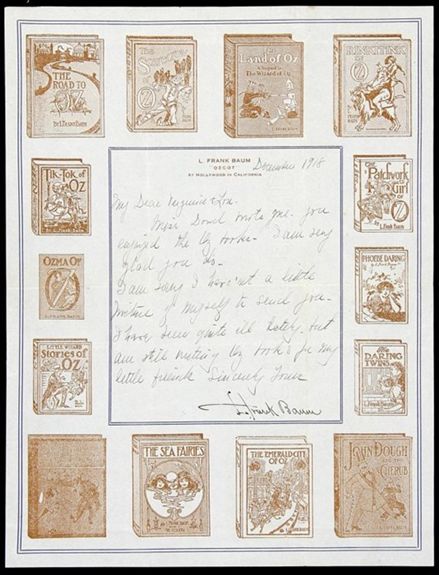 THE ROAD TO OZ
By L. FRANK BAUM
The
OZ
The Land of Oz
A Sequel to The Wizard of Oz
RINKITINK IN OZ
L. FRANK BAUM
OZCOT
AT HOLLYWOOD IN CALIFORNIA
December 1918
Tik-Tok of Oz
By L. Frank Baum
The Patchwork Girl of Oz
By L. Frank Baum
My Dear
Miss writes you
enjoyed the Oz books. I am very
glad you do.
I am sorry I haven't a little
picture of myself to send you.
I have been quite ill lately, but
am still writing Oz books for my
little friends. Sincerely Yours
L. Frank Baum
OZMA OF OZ
L. FRANK BAUM
PHOEBE DARING
LITTLE WIZARD
Stories of OZ
THE DARING TWINS
THE SEA FAIRIES
THE EMERALD CITY OF OZ
JOHN DOUGH
AND THE
CHERUB